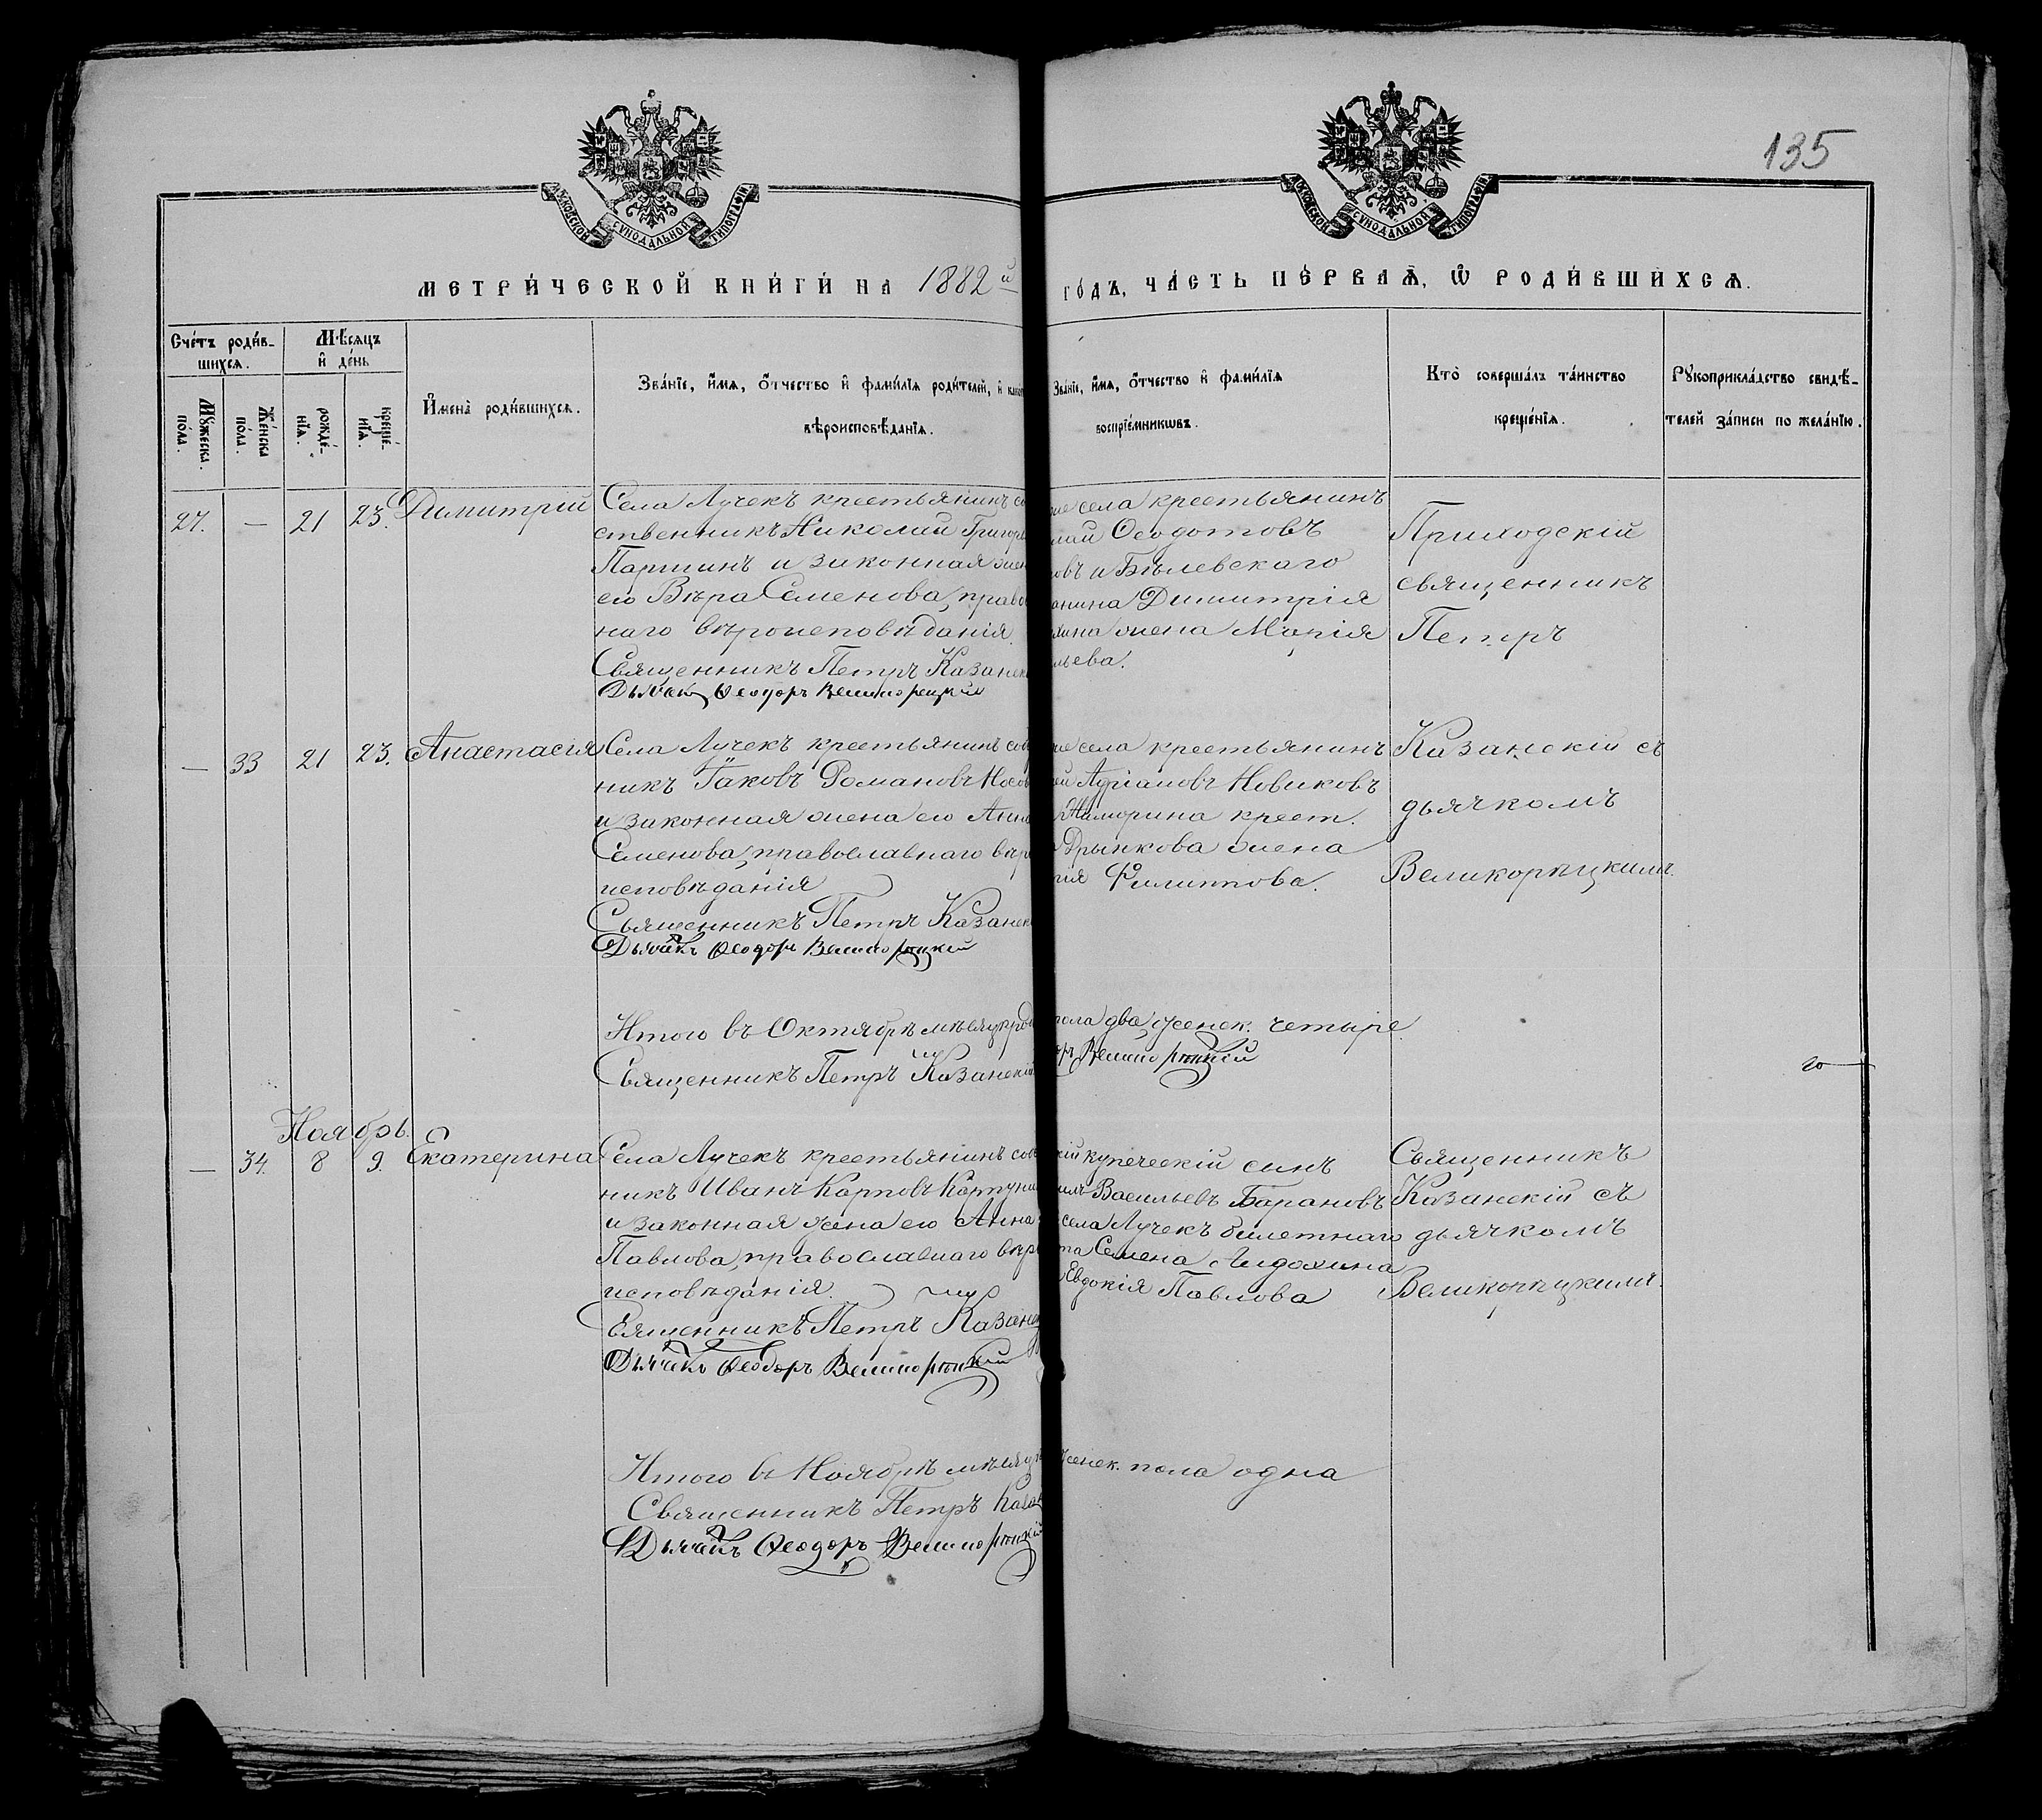 135
МОСКОВСКОЙ СѴНОДАЛЬНОЙ ТИПОГРАФІИ
МОСКОВСКОЙ СѴНОДАЛЬНОЙ ТИПОГРАФІИ
МЕТРИ́ЧЕСКОЙ КНИ́ГИ НА 1882й
ГО́ДЪ, ЧА́СТЬ ПЕ́РВАѦ, Ѡ РОДИ́ВШИХСѦ.
Сче́тъ роди́в-
шихсѧ.
Мѣ́сѧцъ
и де́нь
Мꙋ́жеска
по́ла.
Же́нска
по́ла.
рожде́-
нїѧ.
креще́-
нїѧ.
И҆мена̀ роди́вшихсѧ.
Зва́нїе, и҆́мѧ, ѻ҆́тчество и҆ фами́лїѧ роди́телей, и҆
вѣроисповѣ́данїѧ.
Зва́нїе, и҆́мѧ, ѻ҆́тчество и҆ фами́лїѧ
воспрїе́мникѡвъ.
Кто̀ соверша́лъ та́инство
креще́нїѧ.
Рꙋкоприкла́дство свидѣ́-
телей за́писи по жела́нїю.
27. — 21 23. Димитрій
Села Лучекъ крестьянинъ со
ственникъ Николай Григорь
Паршинъ и законная жен
его Вѣра Семенова, право
наго вѣроисповѣданія.
Священникъ Петръ Казанск
Дьячекъ Ѳеодоръ Великорецкій
села крестьянинъ
Ѳеодотовъ
овъ и Бѣлевскаго
анина Димитрія
хина жена Марія
льева.
Приходскій
священникъ
Петръ
— 33 21 23. Анастасія
Села Лучекъ крестьянинъ соб
никъ Іаковъ Романовъ Носов
и законная жена его Анн
Семенова, православнаго вѣро
исповѣданія
Священникъ Петръ Казанск
Дьячекъ Ѳеодоръ Великорецкій
села крестьянинъ
Адріановъ Новиковъ
крест.
Дрынкова жена
Филиппова.
Казанскій съ
дьячкомъ
Великорѣцкимъ.
Итого въ Октябрѣ мѣсяцѣ
пола два, женск. четыре.
Священникъ Петръ Казанскій
Великорѣцкій
Ноябрь.
— 34. 8 9. Екатерина
Села Лучекъ крестьянинъ соб
никъ Иванъ Карповъ
и законная жена его Анна
Павлова, православнаго вѣро
исповѣданія.
Священникъ Петръ Казанс
Дьячекъ Ѳеодоръ Великорѣцкій
купеческій сынъ
Васильевъ Барановъ
села Лучекъ билетнаго
Семена
Евдокія Павлова
Священникъ
Казанскій съ
дьячкомъ
Великорѣцкимъ.
Итого въ Ноябрѣ мѣсяцѣ
женск. пола одна
Священникъ Петръ Казан
Дьячекъ Ѳеодоръ Великорѣцкій